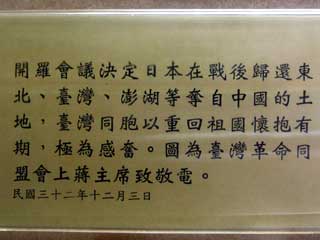 開羅會議決定日本在戰後歸還東
北、臺灣、澎湖等奪自中國的土
地，臺灣同胞以重回祖國懷抱有
期，極為感奮。圖為臺灣革命同
盟會上蔣主席致敬電。
民國三十二年十二月三日